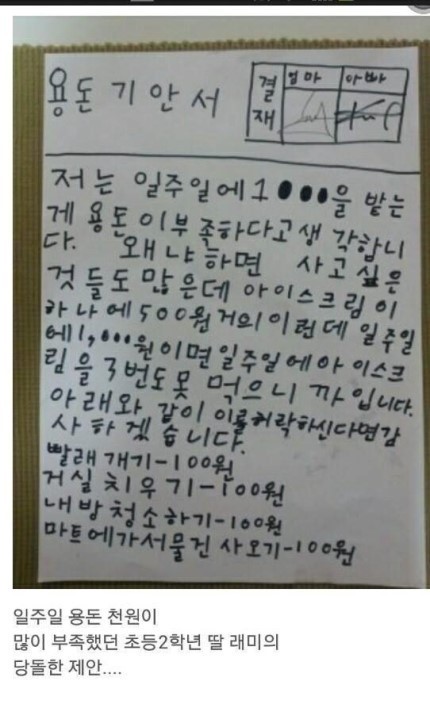 용돈 기안서
결재
엄마 아빠
저는 일주일에 1000을 받는
게 용돈이부족하다고생각합니
다. 왜냐하면 사고싶은
것들도많은데 아이스크림이
하나에500원거의이런데 일주일
에1,000원이면일주일에아이스크
림을 3번도못 먹으니까입니다.
아래와 같이 이를허락하신다면감
사하겠습니다.
빨래개기-100원
거실치우기-100원
내방청소하기-100원
마트에가서물건사오기-100원
일주일 용돈 천원이
많이 부족했던 초등2학년 딸 래미의
당돌한 제안....